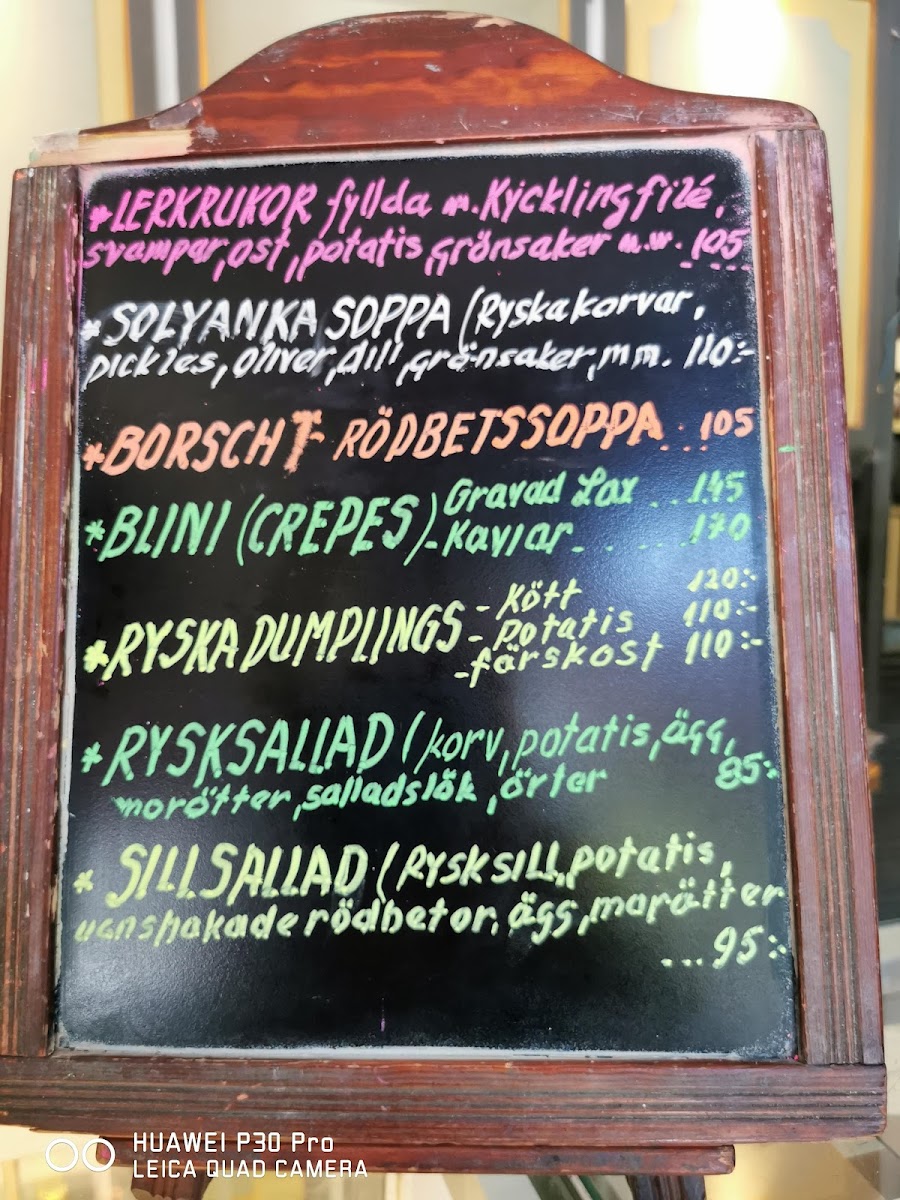 *LERKRUKOR fyllda m. Kycklingfilé,
svampar, ost, potatis, grönsaker m.m. 105
*SOLYANKA SOPPA (Ryska korvar,
pickles, oliver, dill, grönsaker, mm. 110:-
*BORSCHT - RÖDBETSSOPPA...105
*BLINI (CREPES) Gravad Lax...145
-Kaviar......170
*RYSKA DUMPLINGS - Kött 120:-
- Potatis 110:-
- färskost 110:-
*RYSKSALLAD (korv, potatis, ägg,
morötter, salladslök, örter 85:-
* SILLSALLAD (Rysk sill, potatis,
ugnsbakade rödbetor, ägg, morötter
...95:-
HUAWEI P30 Pro
LEICA QUAD CAMERA